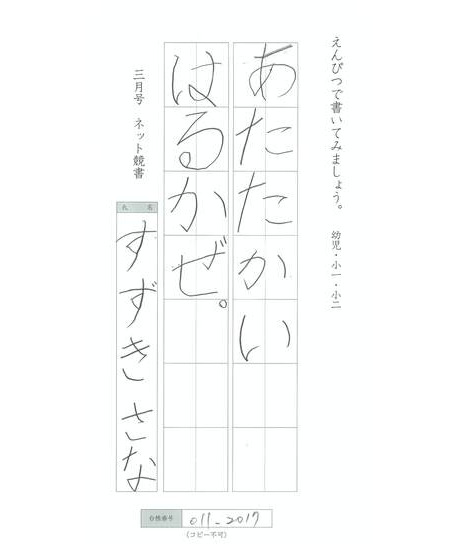 えんぴつで書いてみましょう。 幼児・小一・小二
あたたかい
はるかぜ。
三月号 ネット競書
氏名
すずきさな
会務番号 011-2017
(コピー不可)